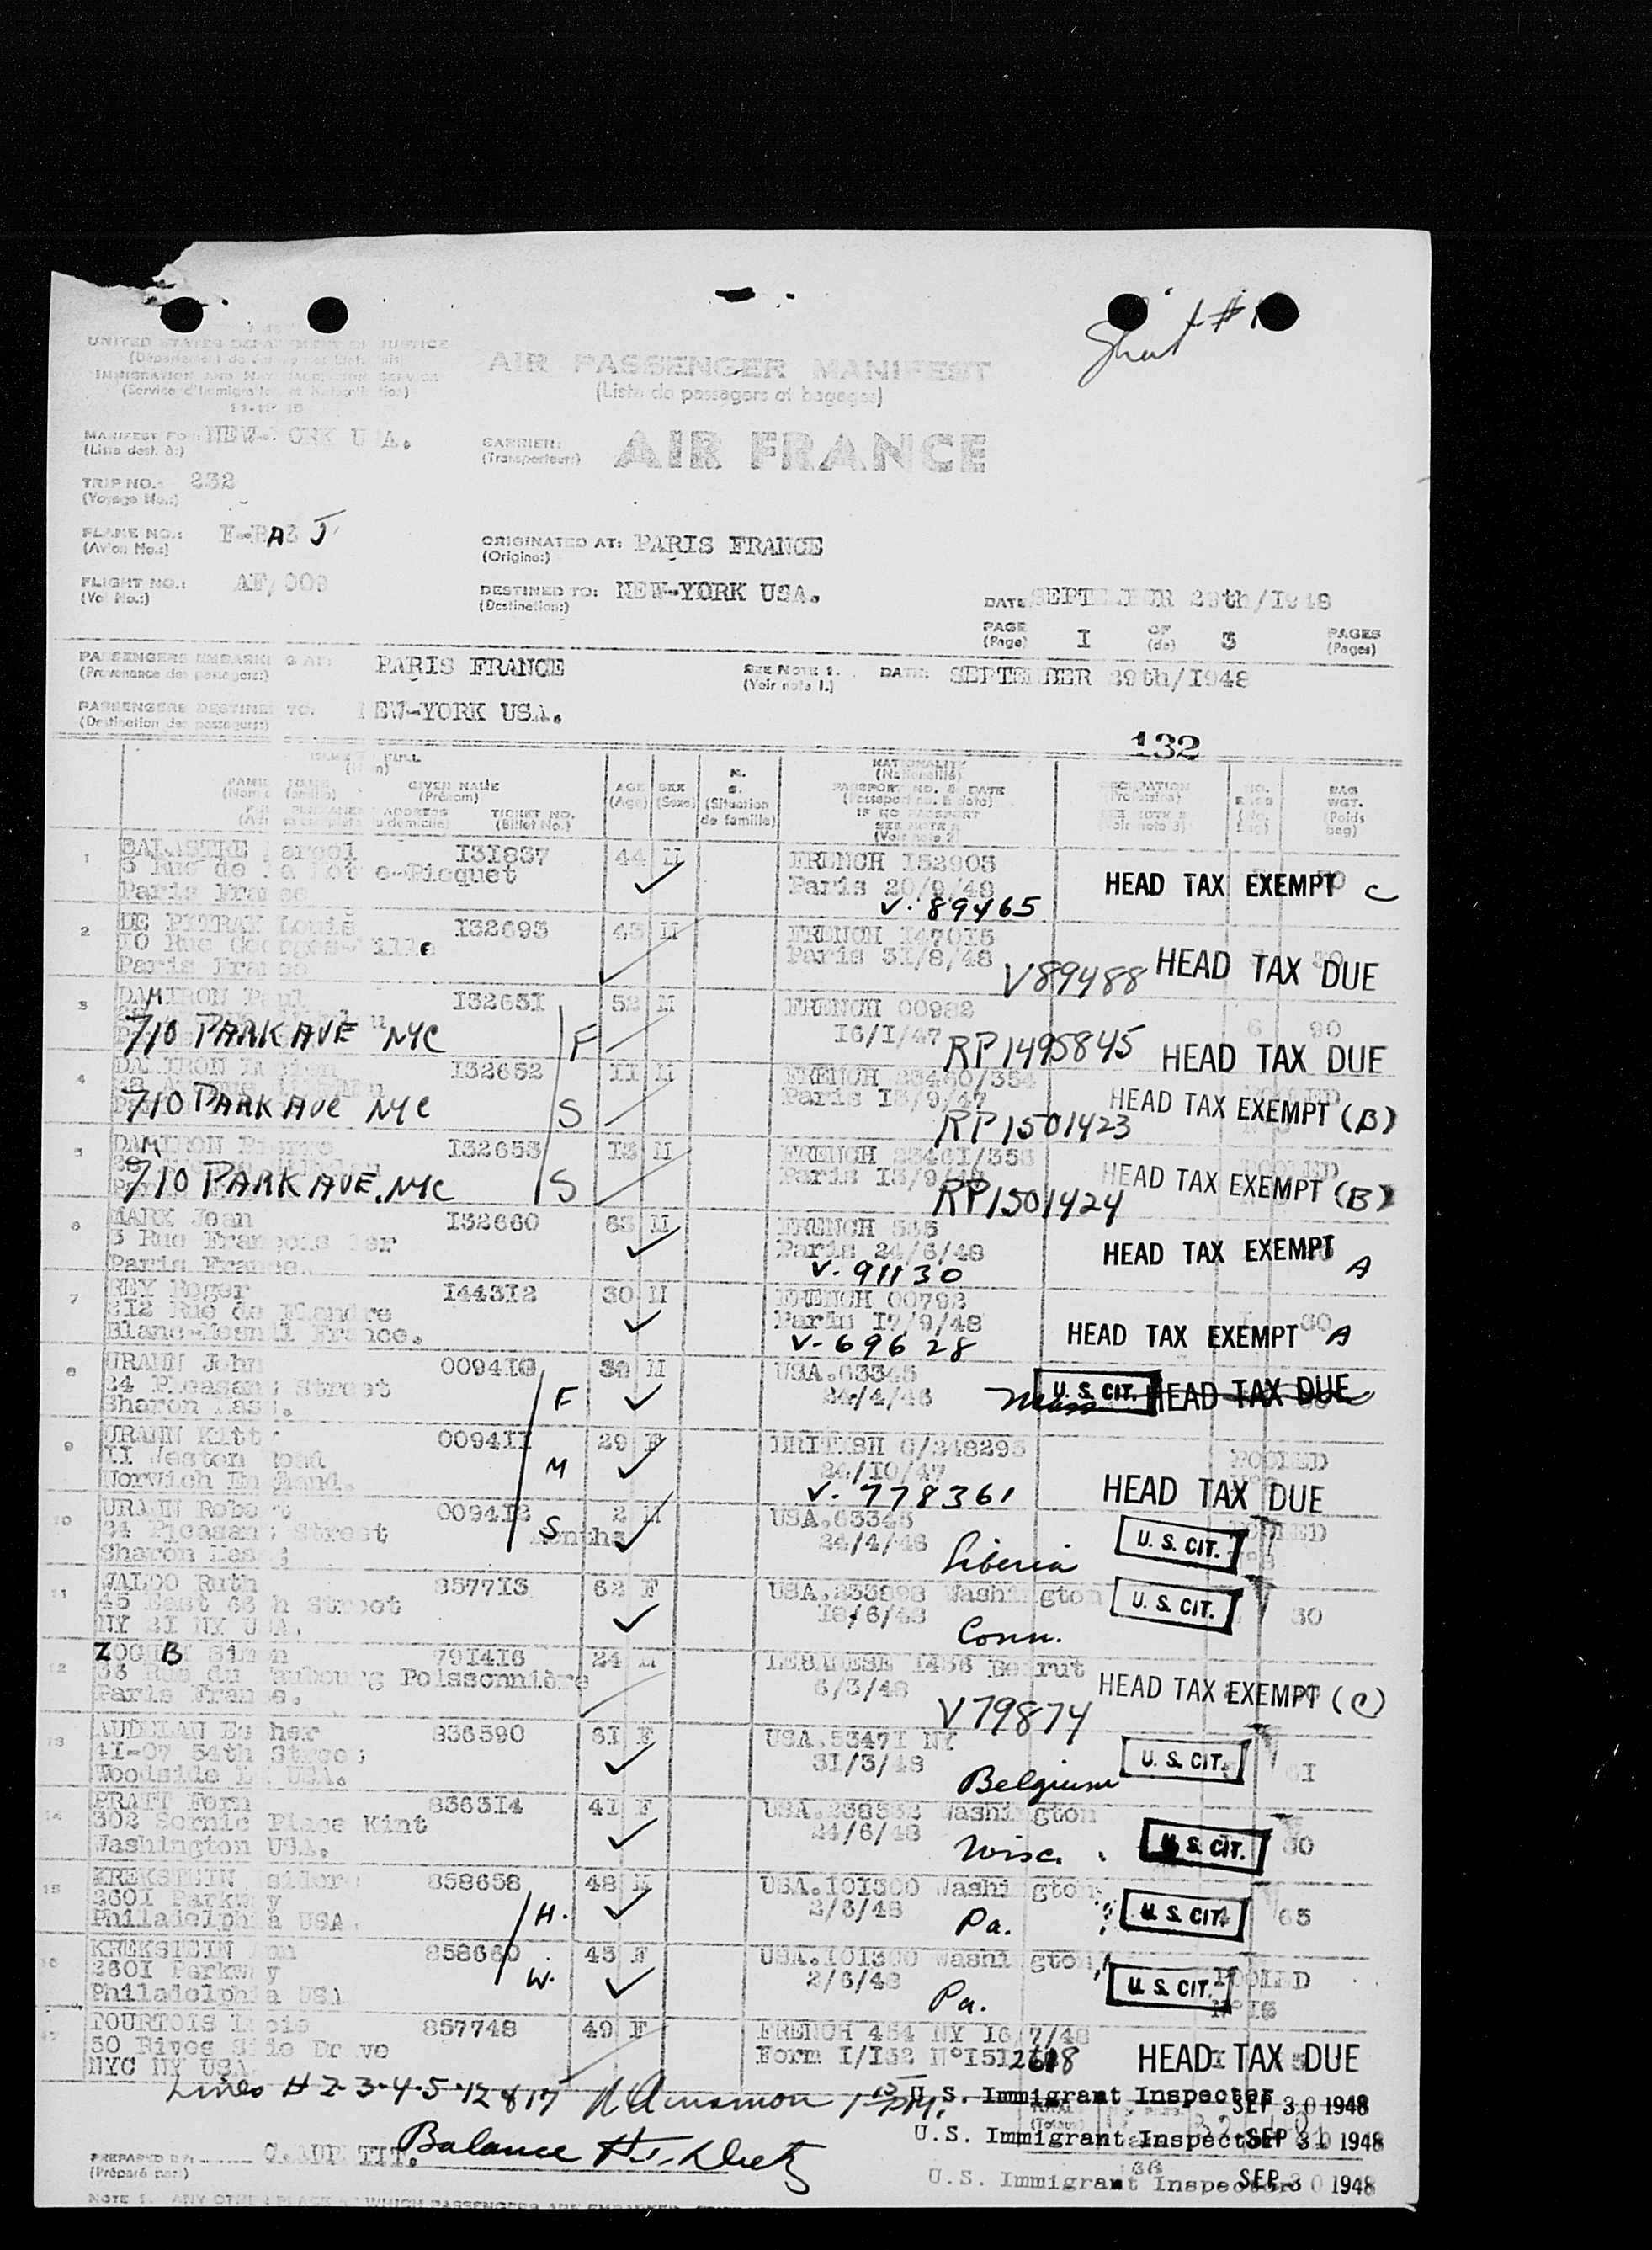 Sheet #1
UNITED STATES DEPARTMENT OF JUSTICE
IMMIGRATION AND NATURALIZATION SERVICE
AIR PASSENGER MANIFEST
(Liste de passagers et bagages)
MANIFEST FOR: NEW-YORK USA.
(Liste dest. à:)
CARRIER: AIR FRANCE
(Transporteur:)
TRIP NO.: 232
(Voyage No.:)
PLANE NO.:
(Avion No.:)
ORIGINATED AT: PARIS FRANCE
(Origine:)
FLIGHT NO.: AF/009
(Vol No.:)
DESTINED TO: NEW-YORK USA.
(Destination:)
DATE SEPTEMBER 29th/1948
PAGE I OF 3 PAGES
(Page) (de) (Pages)
PASSENGERS EMBARKING AT: PARIS FRANCE SEE NOTE 1. DATE: SEPTEMBER 29th/I948
(Provenance des passagers:) (Voir note 1.)
PASSENGERS DESTINED TO: NEW-YORK USA.
(Destination des passagers:)
132
NAME IN FULL
FAMILY NAME GIVEN NAME AGE SEX M. S. NATIONALITY
(Prénom) (Age) (Sexe) (Situation de famille) PASSPORT NO. & DATE
TICKET NO. IF NO PASSPORT SEE NOTE 2 BAG WGT.
(Billet No.) (Voir note 2) (Voir note 3) (Poids bag)
1 BALESTRE Marcel I3I837 44 M FRENCH I52903
3 Rue de La Motte-Picquet Paris 20/9/48 HEAD TAX EXEMPT C
Paris France V. 89465
2 DE PITRAY Louis I32693 43 M FRENCH I470I5
10 Rue Georges-Ville Paris 3I/8/48 HEAD TAX DUE
Paris France V89488
3 DAMIRON Paul I3265I 52 M FRENCH 00982
I6/I/47 6 90
710 PARK AVE NYC F RP1495845 HEAD TAX DUE
4 DAMIRON I32652 II M FRENCH 23460/354
Paris I3/9/47 HEAD TAX EXEMPT (B)
710 PARK AVE NYC S RP1501423
5 DAMIRON Pierre I32653 I3 M FRENCH 2346I/353
HEAD TAX EXEMPT (B)
710 PARK AVE. NYC S RP1501424
6 MARX Jean I32660 63 M FRENCH 535
3 Rue François Ier Paris 24/6/48 HEAD TAX EXEMPT A
Paris France. V. 91130
7 REY Roger I443I2 30 M FRENCH 00792
212 Rue de Flandre Paris I7/9/48
Blanc-Mesnil France. V-69628 HEAD TAX EXEMPT A
8 URANN John 0094I0 30 M USA.63345
24 Pleasant Street F 24/4/46 Mass U. S. CIT. HEAD TAX DUE
Sharon Mass.
9 URANN Kitty 0094II 29 F BRITISH C/248293 POOLED
II Weston Road M 24/10/47
Norwich England. V. 778361 HEAD TAX DUE
10 URANN Robert 0094I2 2 M USA.63345 POOLED
24 Pleasant Street S months 24/4/46 U. S. CIT.
Sharon Mass Liberia
11 WALDO Ruth 8577I3 62 F USA.233898 Washington U. S. CIT.
45 East 66th Street I8/6/48 30
NY 2I NY USA. Conn.
12 79I4I6 24 M LEBANESE I456 Beirut
33 Rue du Faubourg Poissonnière 6/3/48 HEAD TAX EXEMPT (C)
Paris France. V79874
13 AUDELAN Esther 836590 6I F USA.5347I NY
4I-07 54th Street 3I/3/48 U. S. CIT. 6I
Woodside L.I USA. Belgium
14 PRATT Fern 8363I4 4I F USA.238532 Washington
302 Place Kint 24/6/48 U. S. CIT. 30
Washington USA. Wisc.
15 KREKSTEIN Isidore 858658 48 M USA.I0I300 Washington
260I Parkway H. 2/6/48 U. S. CIT. 65
Philadelphia USA. Pa.
16 KREKSTEIN 858660 45 F USA.I0I300 Washington
260I Parkway W. 2/6/48 U. S. CIT. POOLED
Philadelphia USA Pa. N°I5
17 TOURTOIS 857748 49 F FRENCH 454 NY I6/7/48
50 River Side Drive Form I/I32 HEAD TAX DUE
NYC NY USA
Lines # 2-3-4-5-12 & 17 U.S. Immigrant Inspector SEP 30 1948
Balance U.S. Immigrant Inspector SEP 30 1948
PREPARED BY:
(Préparé par:) U.S. Immigrant Inspector SEP 30 1948